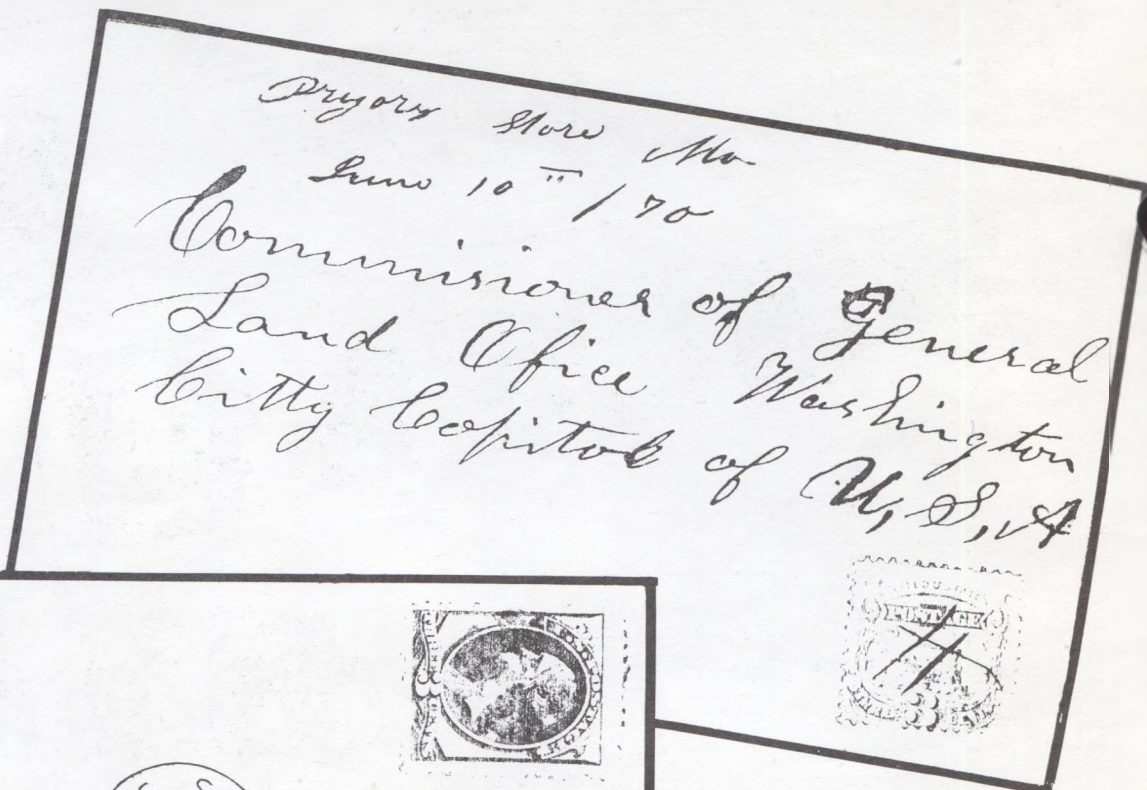 Pryors Store Mo
June 10th /70
Commisioner of General
Land Ofice Washington
Citty Capitol of U, S, A
POSTAGE